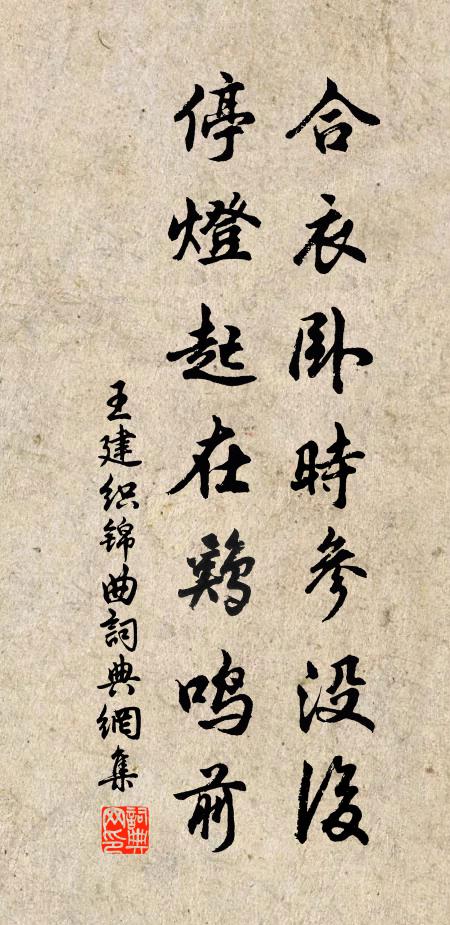 合衣卧時參没後
停燈起在鷄鳴前
王建织锦曲詞典網集
詞典网印